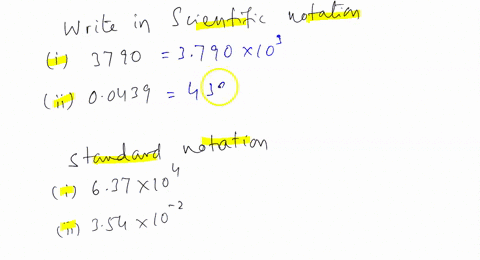 Write in Scientific notation
(i) 3790 = 3.790 × 10³
(ii) 0.0439 = 430
Standard notation
(i) 6.37 × 10⁴
(ii) 3.54 × 10⁻²